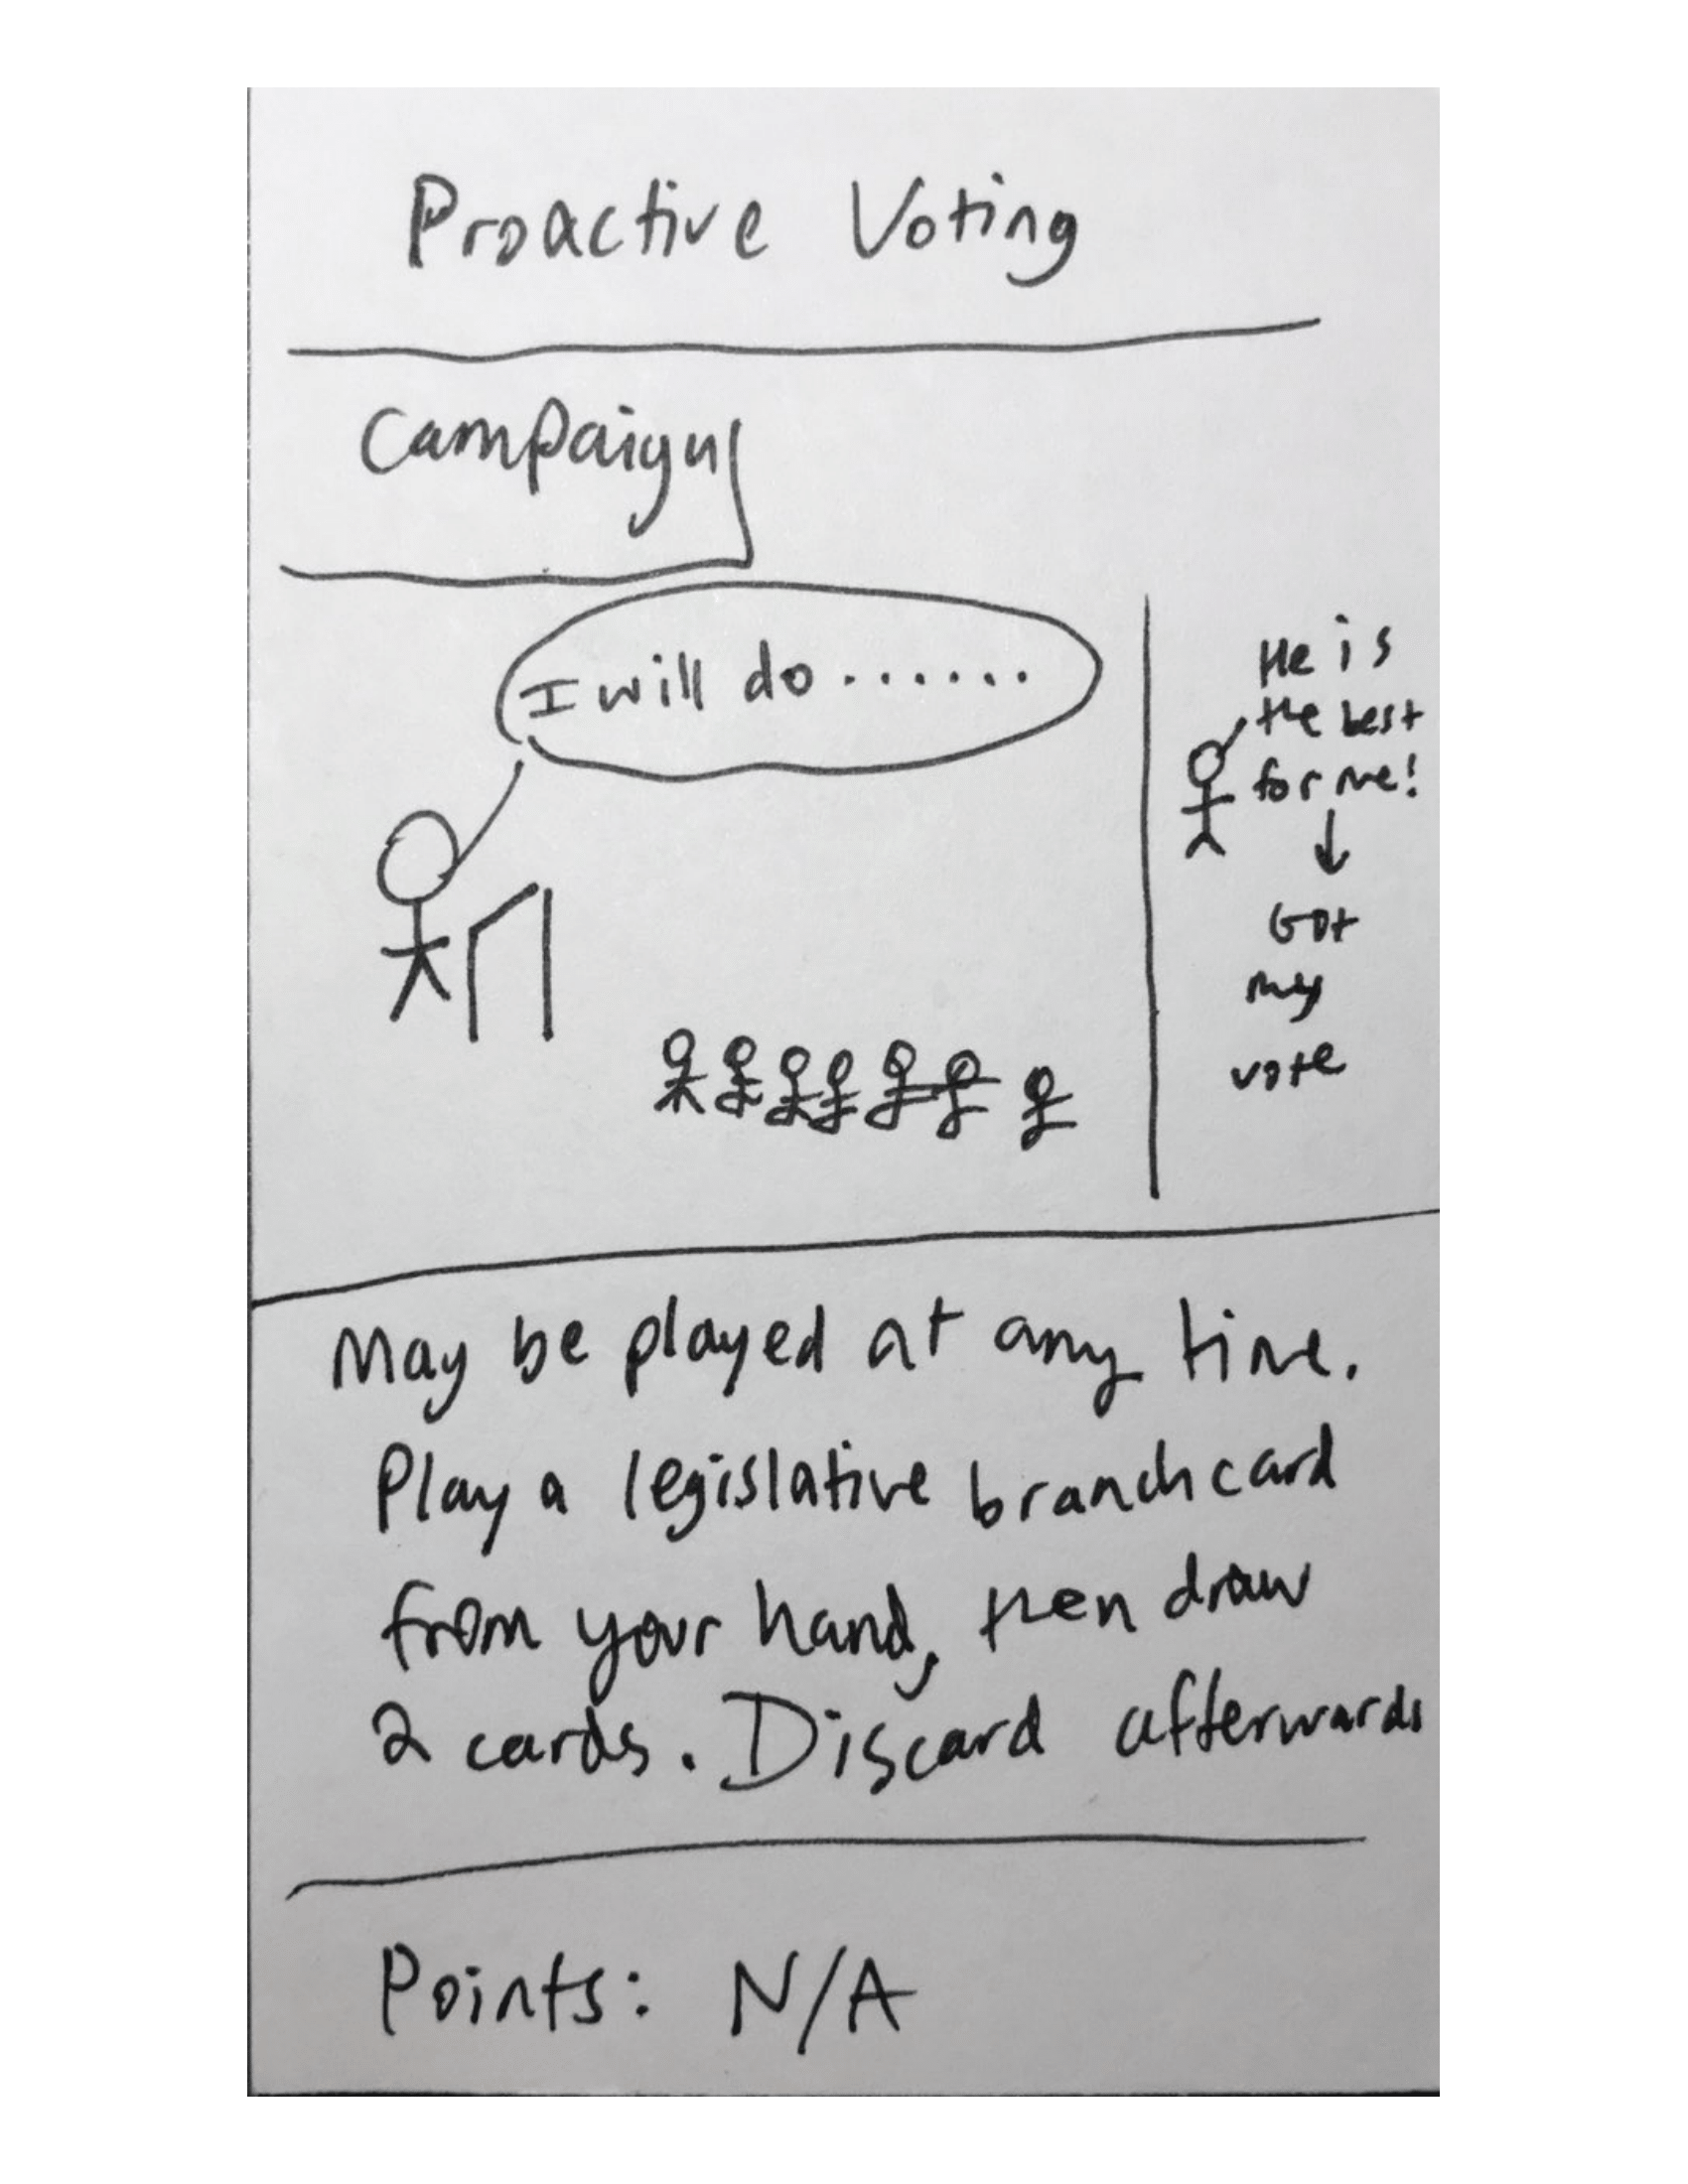 Proactive Voting
Campaign
I will do.......
He is
the best
for me!
Got
my
vote
May be played at any time.
Play a legislative branch card
from your hand, then draw
2 cards. Discard afterwards
Points: N/A